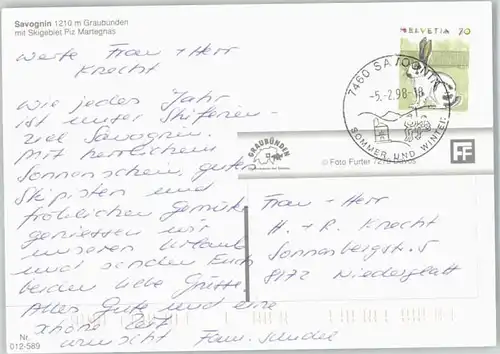 Savognin 1210 m Graubünden
mit Skigebiet Piz Martegnas
Werte Frau + Herr
Knecht
Wie jedes Jahr
ist unser Skiferien-
ziel Savognin.
Mit herrlichem
Sonnenschein, guten
Skipisten und
fröhlichen Gemüt
geniessen wir
unseren Urlaub
und senden Euch
beiden liebe Grüsse.
Alles Gute und eine
schöne Zeit
wünscht Fam.
Nr.
012-589
HELVETIA 70
7460 SAVOGNIN
-5.-2.98-18
SOMMER UND WINTER
GRAUBÜNDEN
© Foto Furter 7270 Davos
FF
Frau + Herr
H. + R. Knecht
Sonnenbergstr. 5
8172 Niederglatt